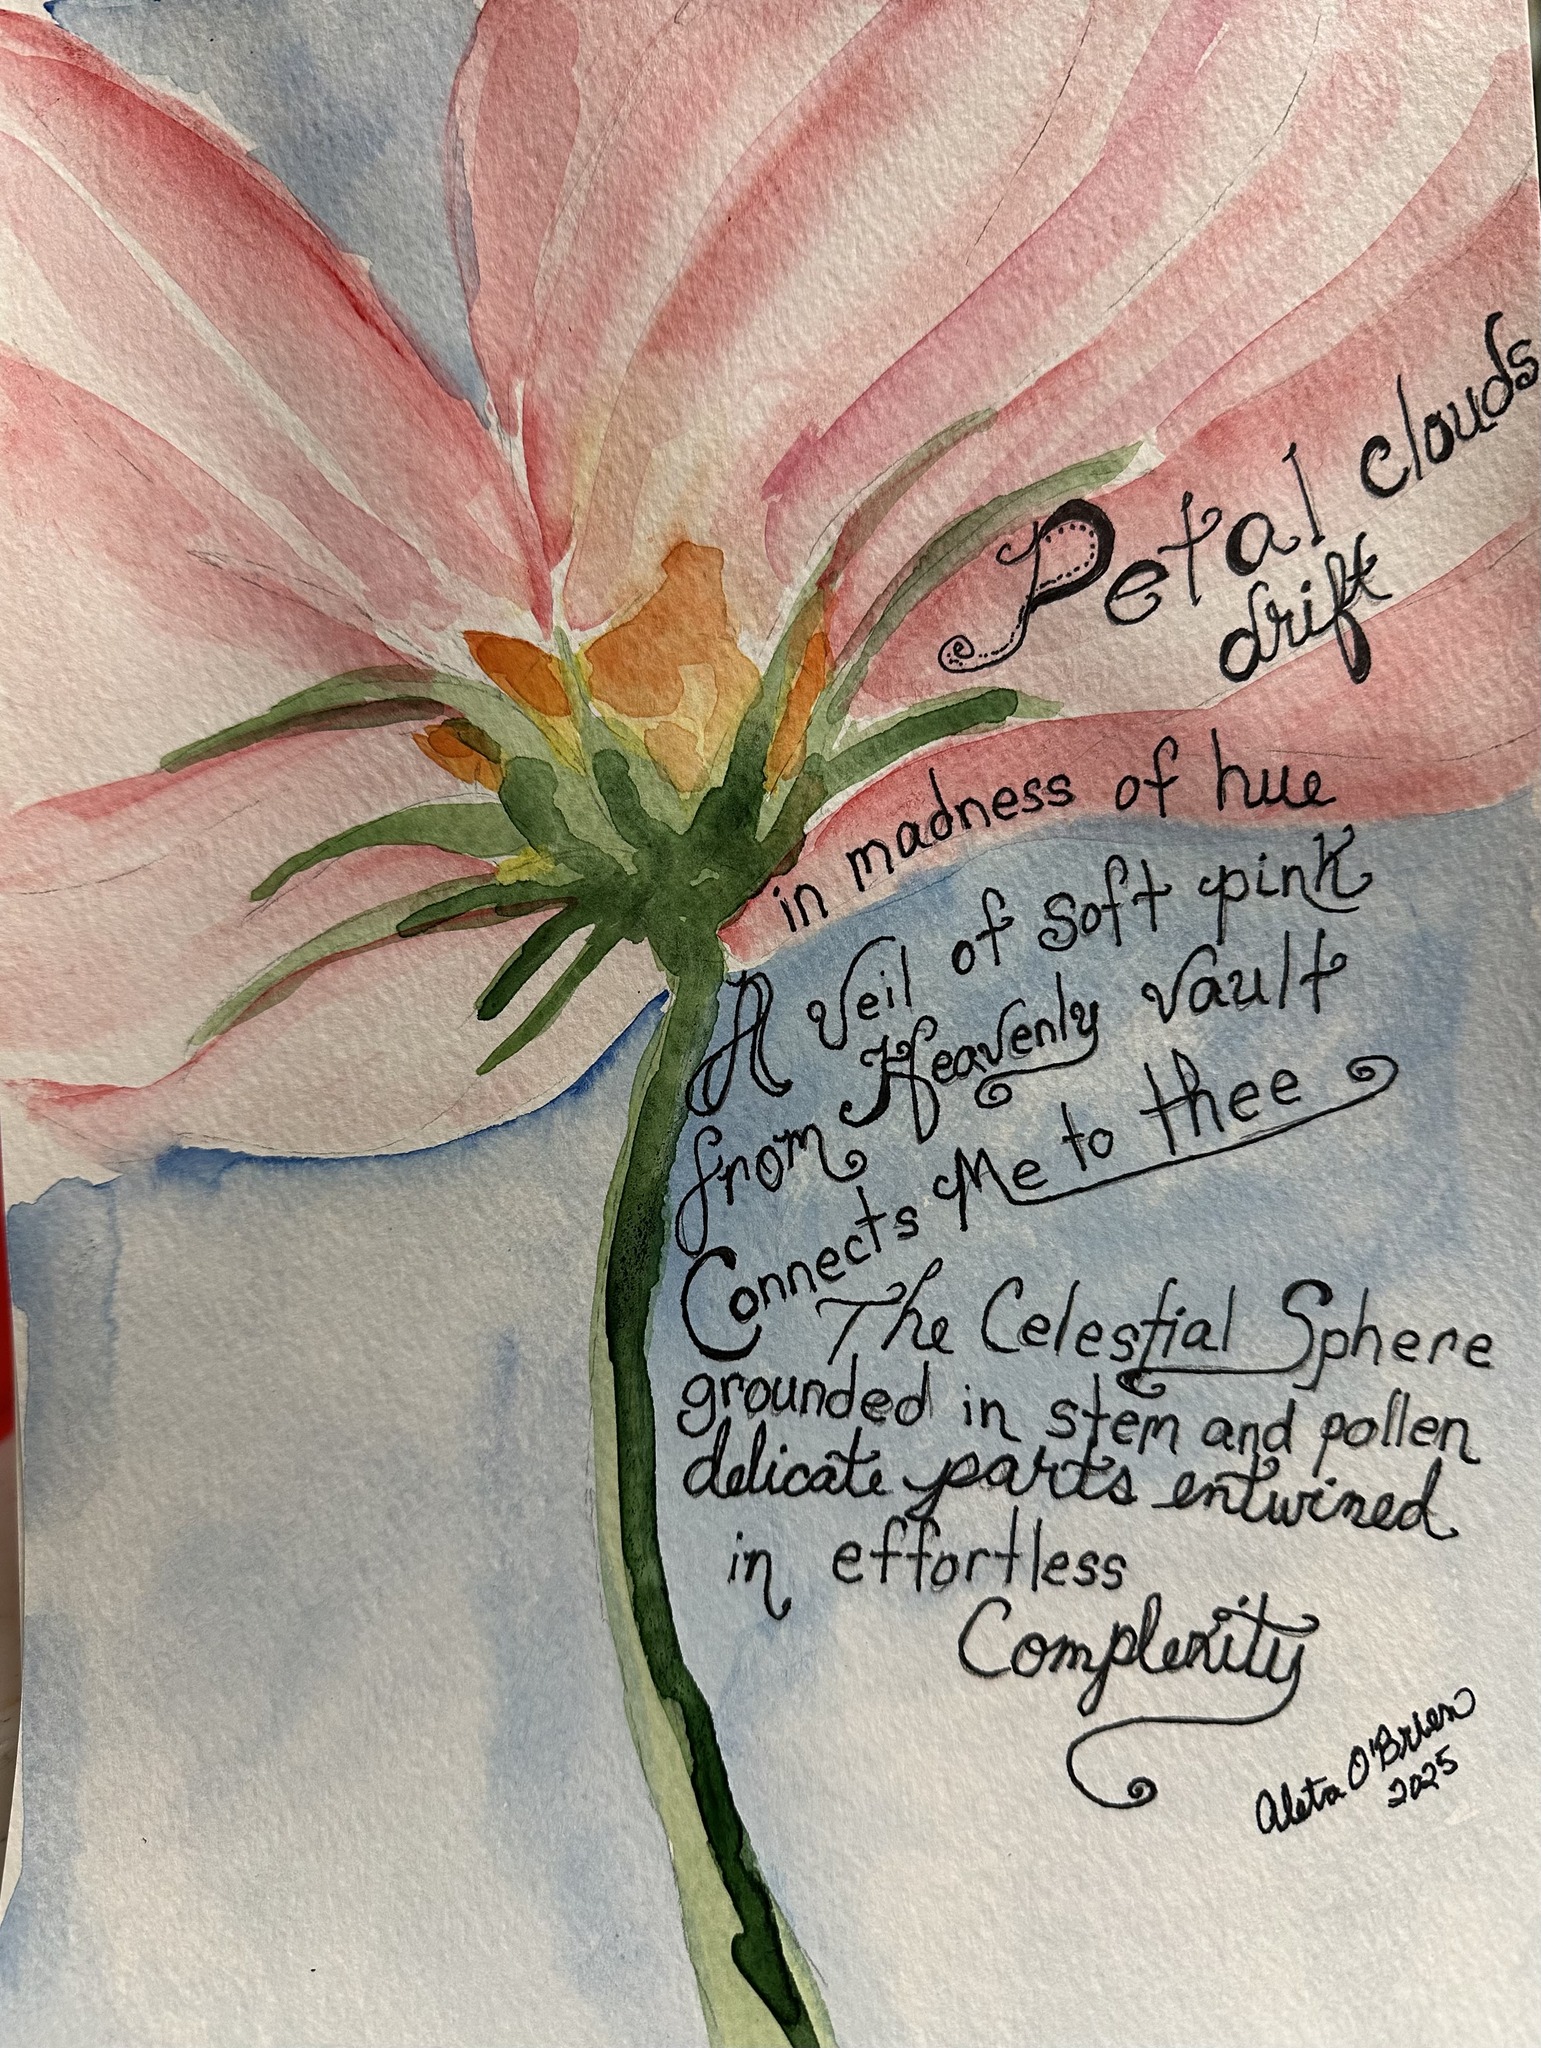 Petal clouds
drift
in madness of hue
A veil of soft pink
from Heavenly Vault
Connects Me to thee
The Celestial Sphere
grounded in stem and pollen
delicate parts entwined
in effortless
Complexity
Aleta O'Brien
2025